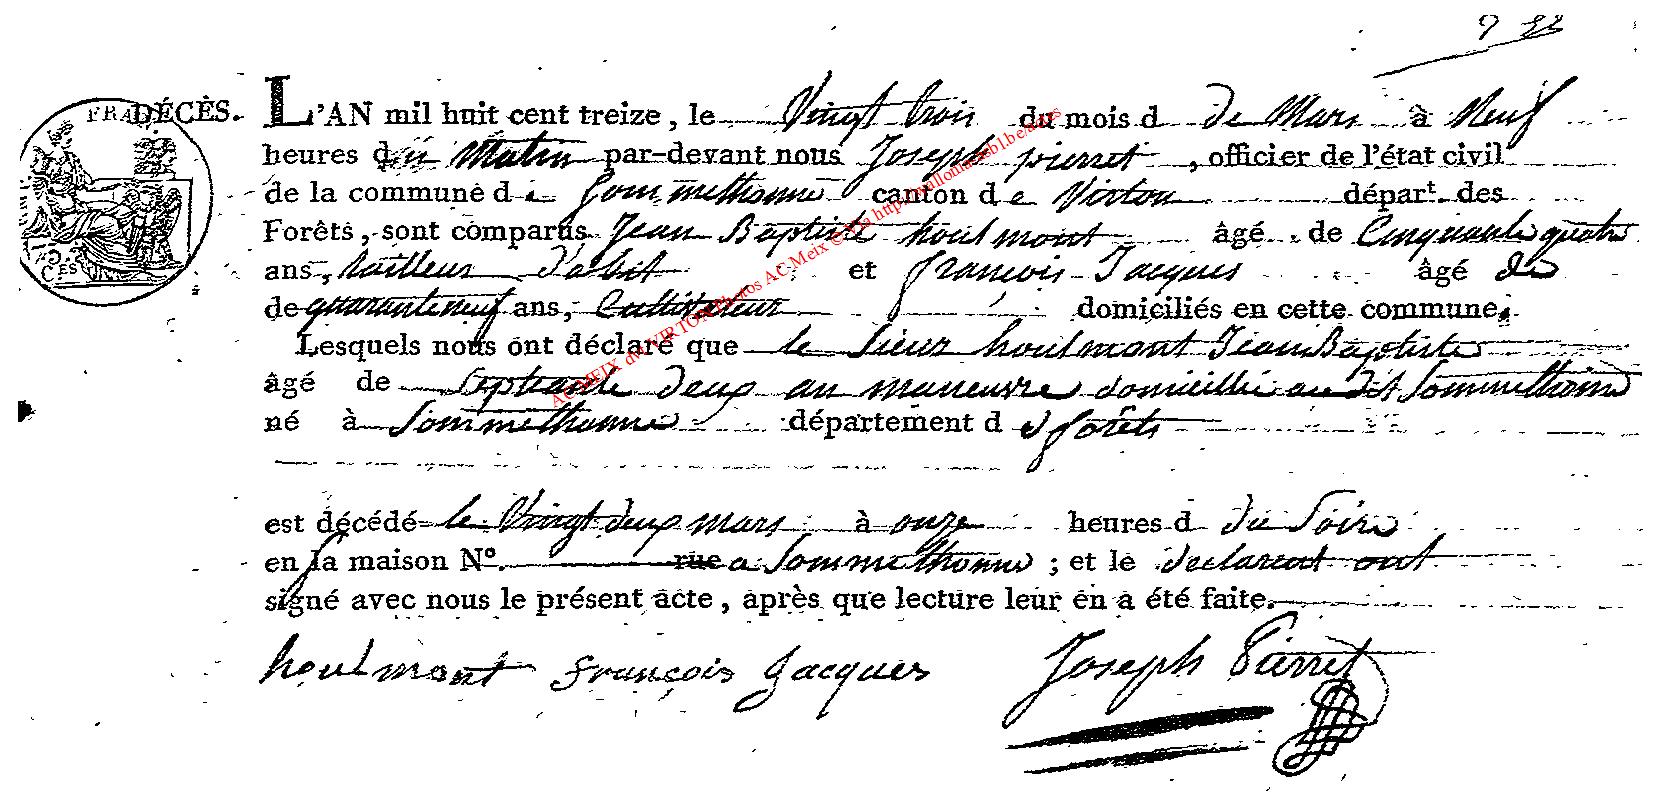 DÉCÈS. L'AN mil huit cent treize, le Vingt trois du mois d de Mars à Neuf
heures du Matin par-devant nous Joseph pierret, officier de l'état civil
de la commune de Sommethonne canton de Virton départ. des
Forêts, sont comparus Jean Baptiste houlmont âgé de Cinquante quatre
ans, tailleur d'abit et françois Jacques âgé de
de quarante neuf ans, Cultivateur domiciliés en cette commune.
Lesquels nous ont déclaré que le Sieur houlmont Jean Baptiste
âgé de Septante deux an maneuvre domicillié au dit Sommethonne
né à Sommethonne département d forêts
est décédé le Vingt deux mars à onze heures d du Soire
en sa maison N°. rue a Sommethonne ; et le declarent ont
signé avec nous le présent acte, après que lecture leur en a été faite.
houlmont françois Jacques Joseph Pierret